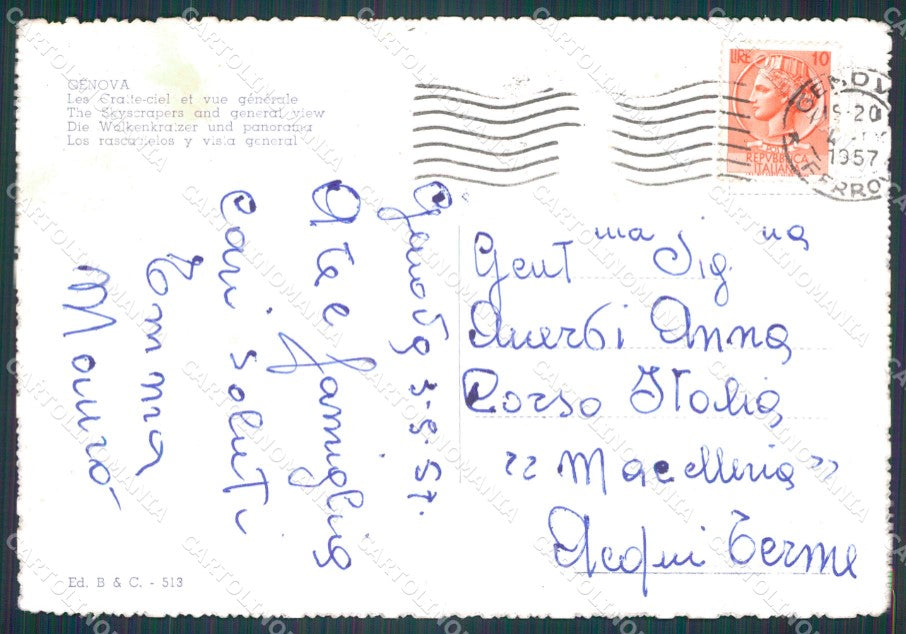 GENOVA
Les Gratte-ciel et vue générale
The Skyscrapers and general view
Die Wolkenkratzer und panorama
Los rascacielos y vista general
LIRE 10
REPVBBLICA
ITALIANA
GENOVA
FERRO
-20
1957
Genova 3-5-57.
A te e famiglia
cari saluti
Emma
Mauro
Gent ma Sig. na
Averbi Anna
Corso Italia
"Macelleria"
Acqui Terme
Ed. B & C. - 513
CARTOLINOMANIA